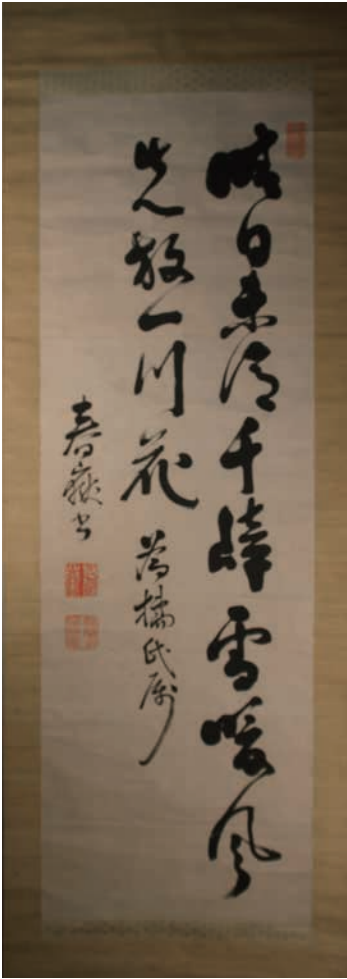 晴日未消千嶂雪暖風
先放一川花 為橘氏属
春嶽書